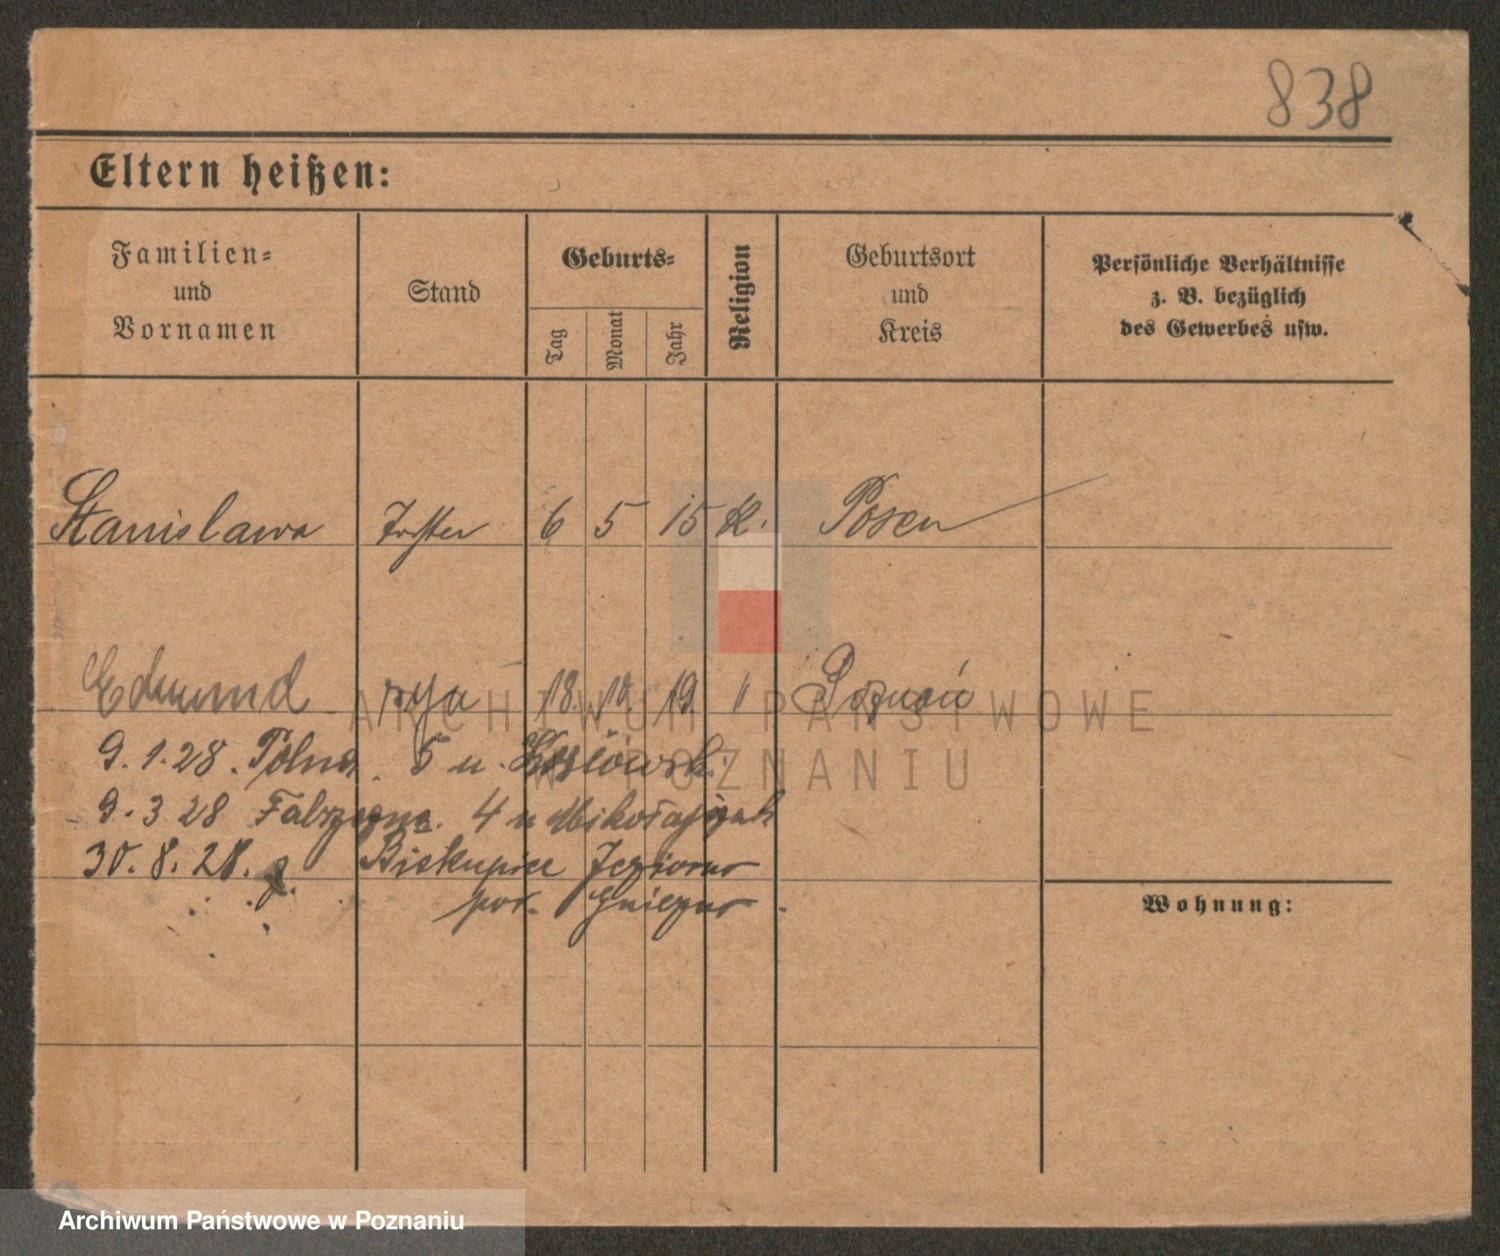 838
Eltern heißen:
Familien= und Vornamen
Stand
Geburts=
Tag
Monat
Jahr
Religion
Geburtsort und Kreis
Persönliche Verhältnisse z. B. bezüglich des Gewerbes usw.
Stanislawa 6 5 15 K. Posen
Edmund 18. 19 " Poznań
9. 1. 28. Polna. 5 u.
9. 3 28 4 u Mikołajczak
30. 8. 28. Biskupice Jezierne
pow. Gniezno.
Wohnung:
ARCHIWUM PAŃSTWOWE
W POZNANIU
Archiwum Państwowe w Poznaniu